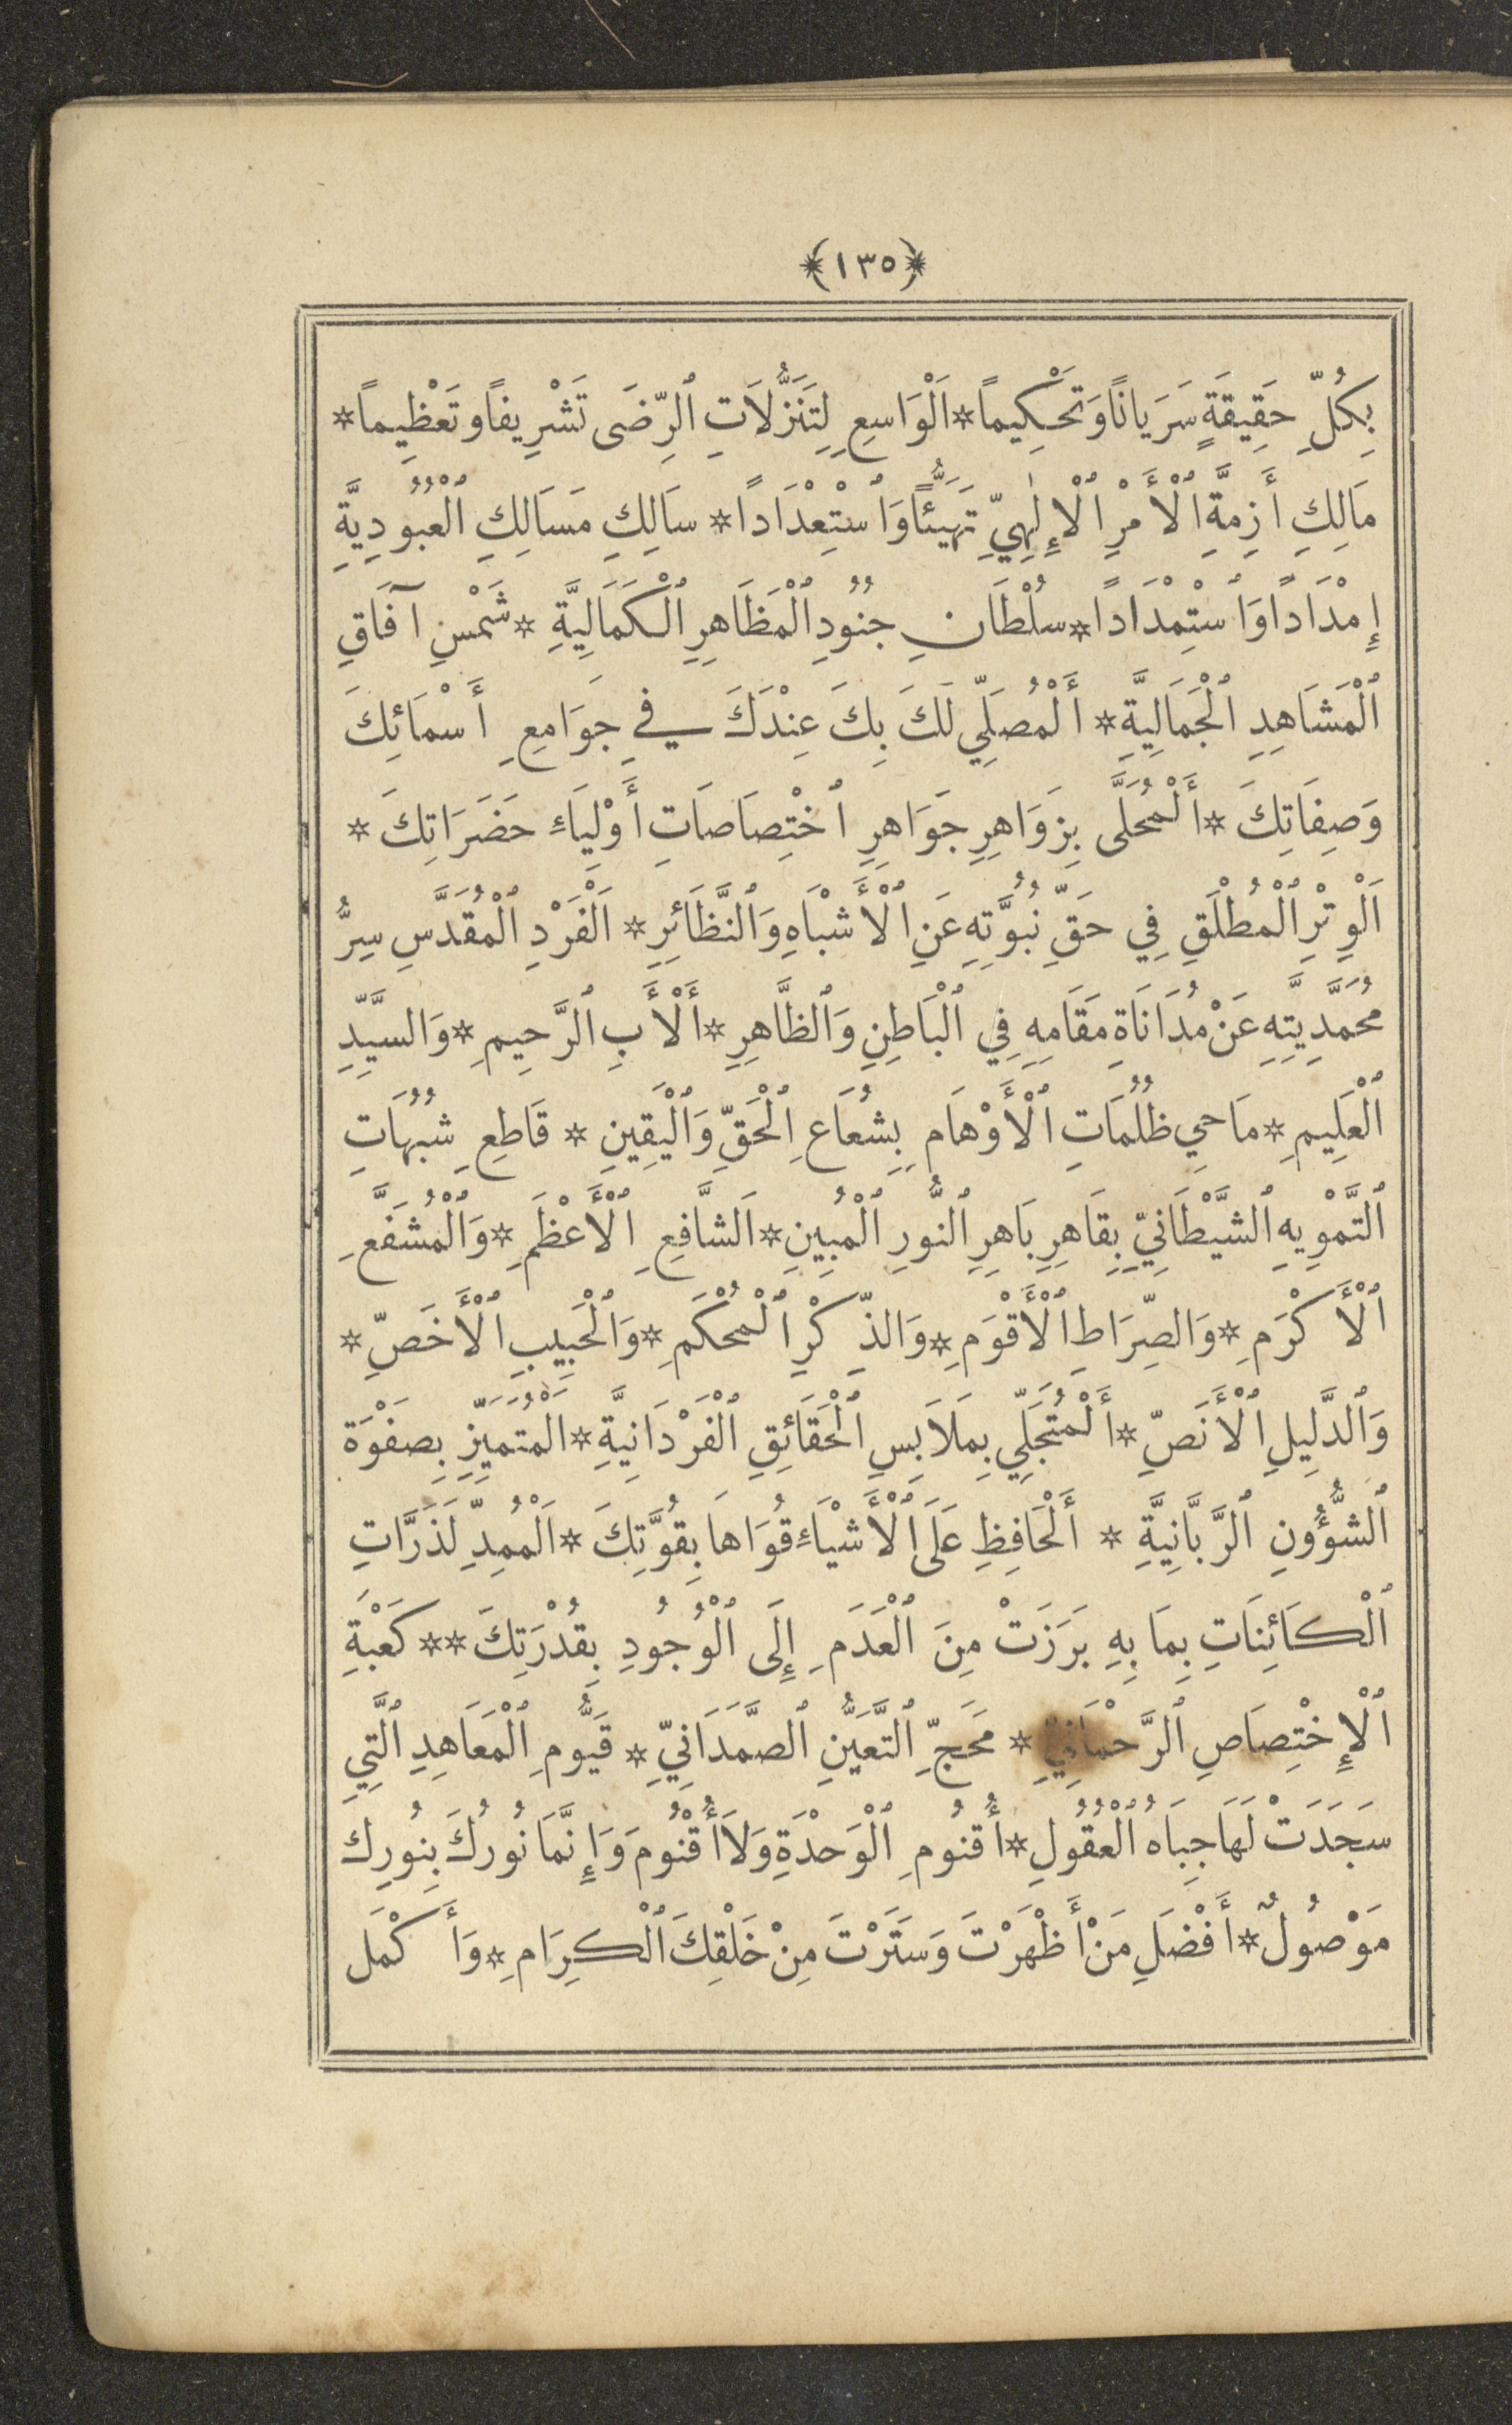 ﴿١٣٥﴾
بِكُلِّ حَقِيقَةٍ سَرَيَانًا وَتَحْكِيمًا * اَلْوَاسِعِ لِتَنَزُّلَاتِ ٱلرِّضَى تَشْرِيفًا وتَعْظِيمًا *
مَالِكِ أَزِمَّةِ ٱلْأَمْرِ ٱلْإِلٰهِيِّ تَهَيُّئًا وَٱسْتِعْدَادًا * سَالِكِ مَسَالِكِ ٱلْعُبُودِيَّةِ
إِمْدَادًا وَٱسْتِمْدَادًا * سُلْطَانِ جُنُودِ ٱلْمَظَاهِرِ ٱلْكَمَالِيَّةِ * شَمْسِ آفَاقِ
ٱلْمَشَاهِدِ ٱلْجَمَالِيَّةِ * أَلْمُصَلِّي لَكَ بِكَ عِنْدَكَ فِي جَوَامِعِ أَسْمَائِكَ
وَصِفَاتِكَ * أَلْمُحَلَّى بِزَوَاهِرِ جَوَاهِرِ ٱخْتِصَاصَاتِ أَوْلِيَاءِ حَضَرَاتِكَ *
اَلْوِتْرِ ٱلْمُطْلَقِ فِي حَقِّ نُبُوَّتِهِ عَنِ ٱلْأَشْبَاهِ وَٱلنَّظَائِرِ * اَلْفَرْدِ ٱلْمُقَدَّسِ سِرُّ
مُحَمَّدِيَّتِهِ عَنْ مُدَانَاةِ مَقَامِهِ فِي ٱلْبَاطِنِ وَٱلظَّاهِرِ * أَلْأَبِ ٱلرَّحِيمِ * وَالسَّيِّدِ
ٱلْعَلِيمِ * مَاحِي ظُلُمَاتِ ٱلْأَوْهَامِ بِشُعَاعِ ٱلْحَقِّ وَٱلْيَقِينِ * قَاطِعِ شُبُهَاتِ
ٱلتَّمْوِيهِ ٱلشَّيْطَانِيِّ بِقَاهِرِ بَاهِرِ ٱلنُّورِ ٱلْمُبِينِ * اَلشَّافِعِ ٱلْأَعْظَمِ * وَٱلْمُشَفَّعِ
ٱلْأَكْرَمِ * وَالصِّرَاطِ ٱلْأَقْوَمِ * وَالذِّكْرِ ٱلْمُحْكَمِ * وَٱلْحَبِيبِ ٱلْأَخَصِّ *
وَٱلدَّلِيلِ ٱلْأَنَصِّ * أَلْمُتَجَلِّي بِمَلَابِسِ ٱلْحَقَائِقِ ٱلْفَرْدَانِيَّةِ * اَلْمُتَمَيِّزِ بِصَفْوَةِ
ٱلشُّؤُونِ ٱلرَّبَّانِيَّةِ * أَلْحَافِظِ عَلَى ٱلْأَشْيَاءِ قُوَاهَا بِقُوَّتِكَ * اَلْمُمِدِّ لَذَرَّاتِ
ٱلْكَائِنَاتِ بِمَا بِهِ بَرَزَتْ مِنَ ٱلْعَدَمِ إِلَى ٱلْوُجُودِ بِقُدْرَتِكَ ** كَعْبَةِ
ٱلْإِخْتِصَاصِ ٱلرَّحْمَانِيِّ * مَحَجِّ ٱلتَّعَيُّنِ ٱلصَّمَدَانِيِّ * قَيُّومِ ٱلْمَعَاهِدِ ٱلَّتِي
سَجَدَتْ لَهَا جِبَاهُ ٱلْعُقُولِ * أُقْنُومِ ٱلْوَحْدَةِ وَلَا أُقْنُومَ وَإِنَّمَا نُورُكَ بِنُورِكَ
مَوْصُولٌ * أَفْضَلِ مَنْ أَظْهَرْتَ وَسَتَرْتَ مِنْ خَلْقِكَ ٱلْكِرَامِ * وَأَكْمَلِ